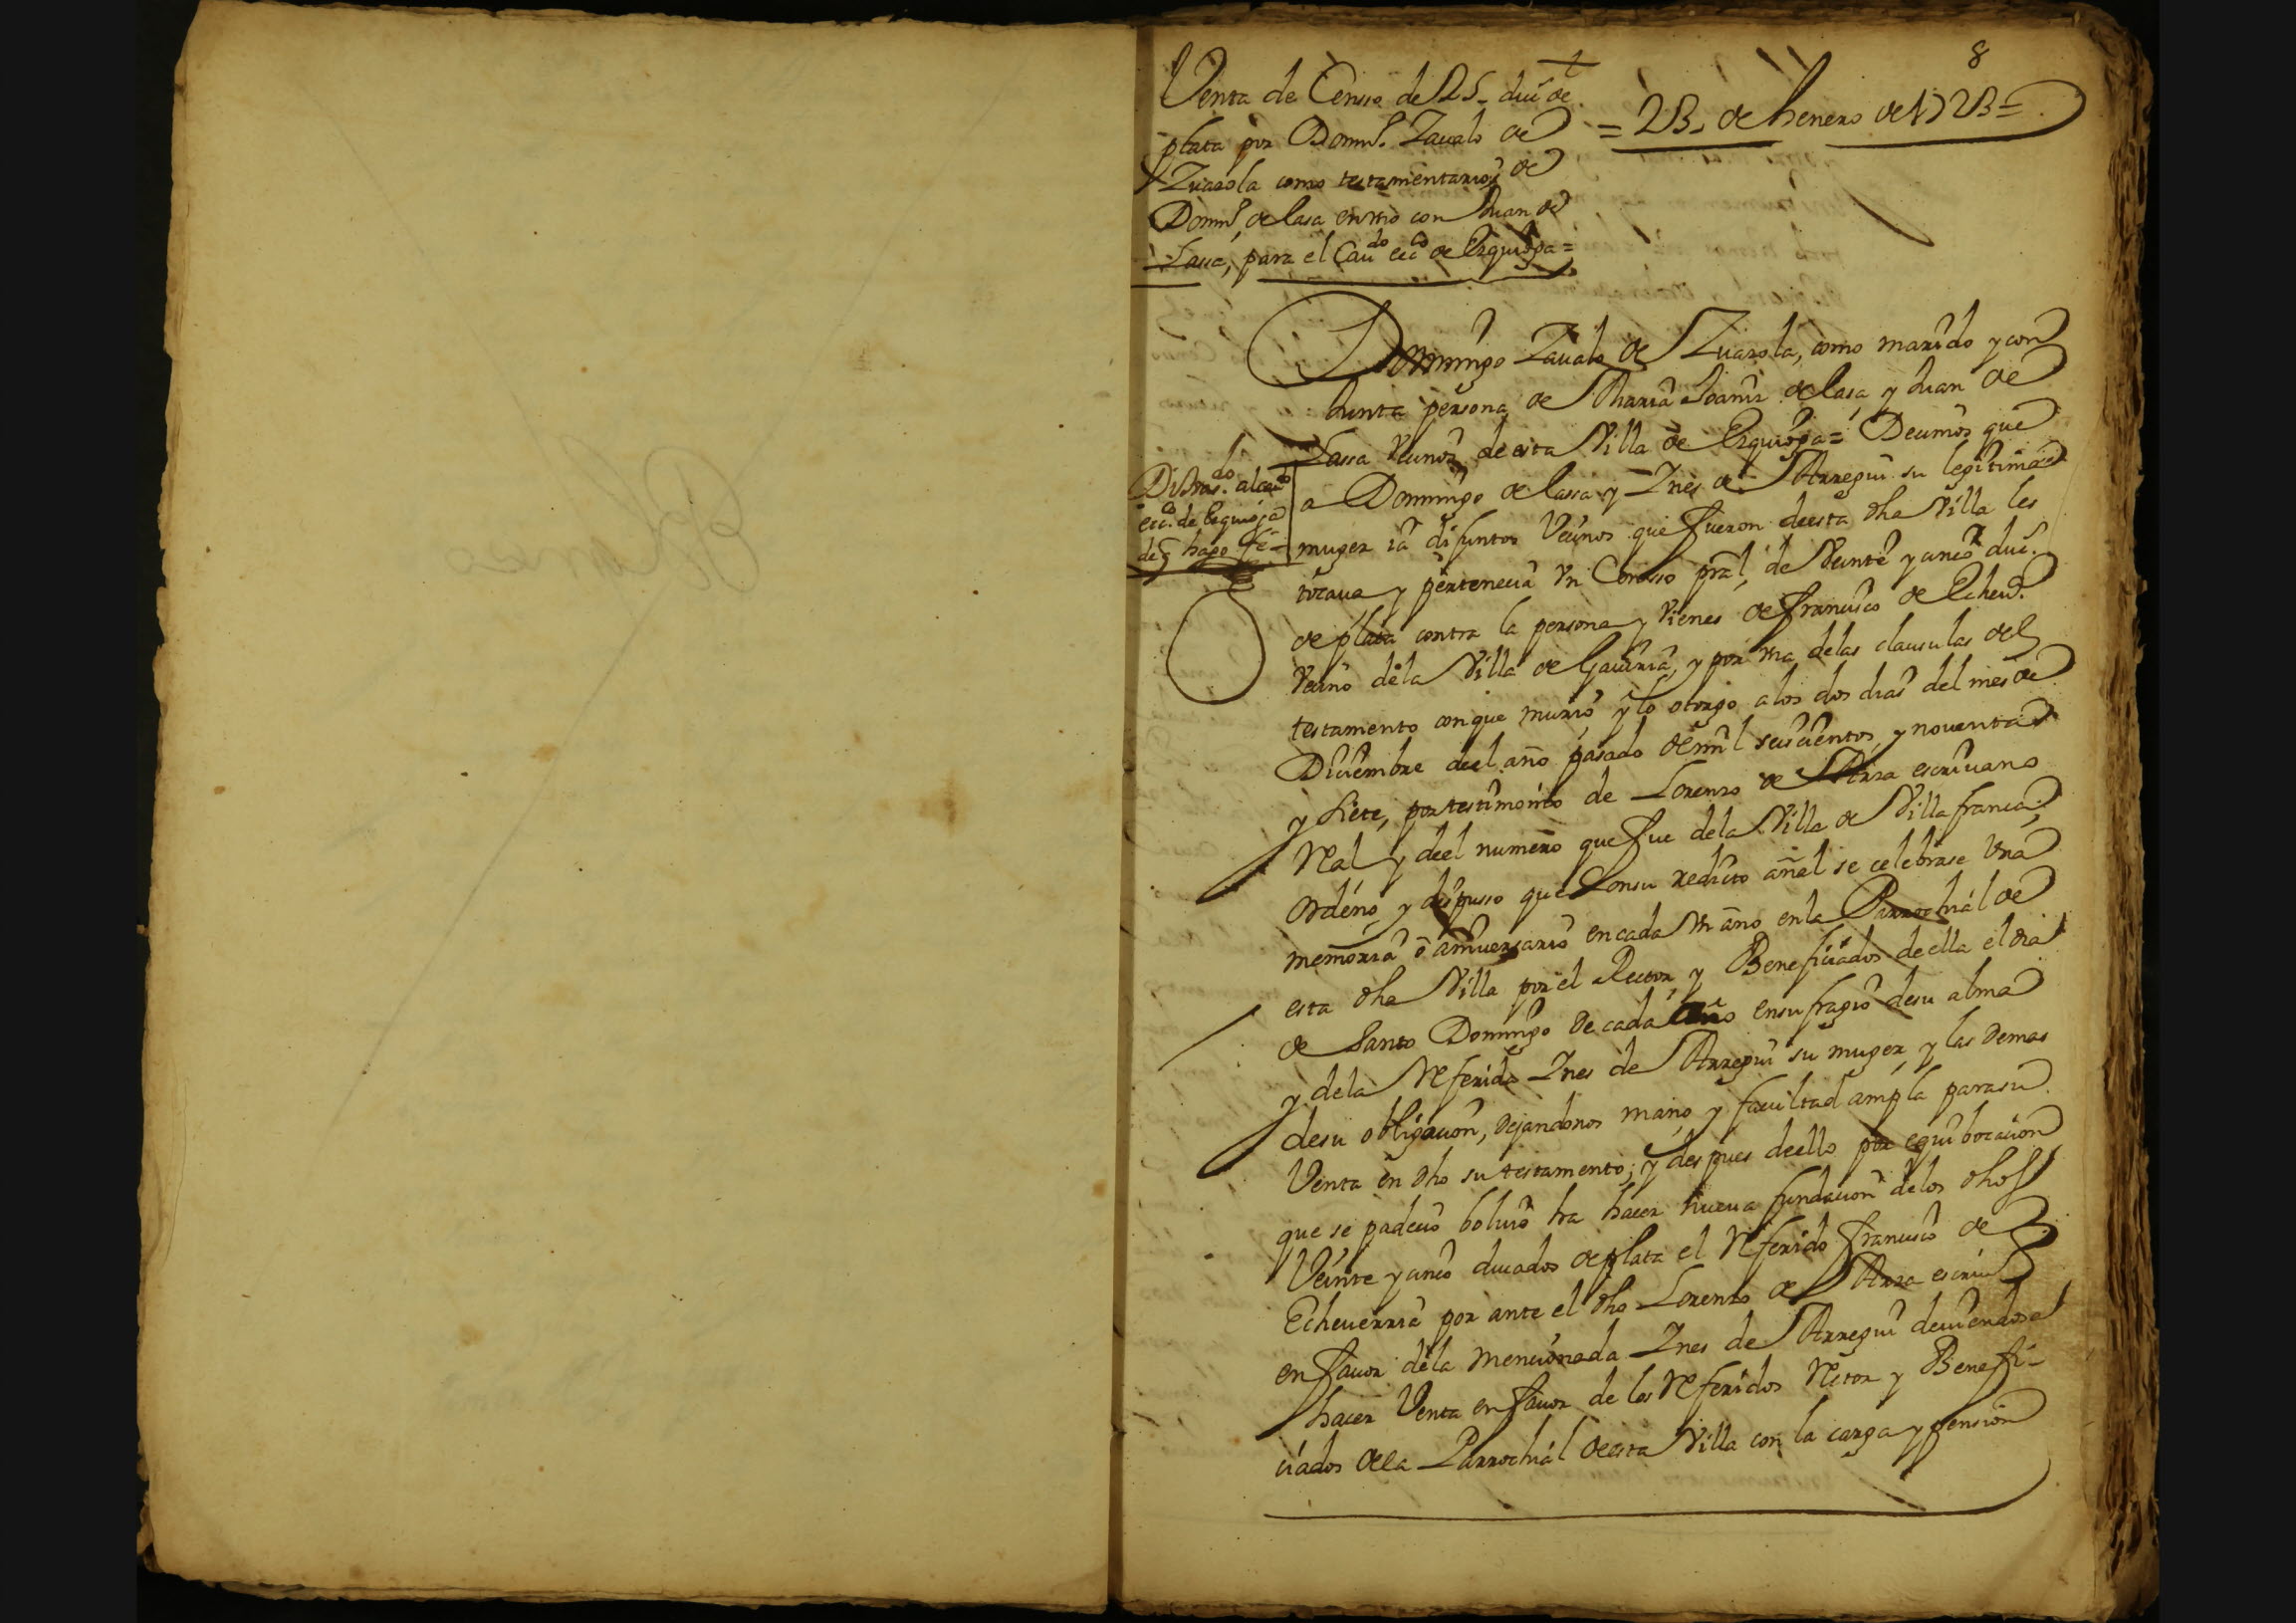 8
Venta de Censso de 25. duc.s de
plata por Domin.o Zavalo de
Zuazola como testamentario de
Domin.o de lasa en vno con Juan de
Lassa, para el Cau.do ecc.o de Ezquioga=
= 23. de henero de 1723=
Domingo Zaualo de Zuazola, como marido y con
Junta persona de Maria Joaniz de lasa y Juan de
Lassa Vecinos de esta Villa de Ezquioga= Decimos que
a Domingo de lassa y Ines de Arregui su legitima
muger ia difuntos Vecinos que fueron de esta dha Villa les
tocaua y pertenecia vn Censso pral de Veinte y cinco duc.s
de plata contra la persona y Vienes de francisco de Echeu.a
Vecino de la Villa de Gauiria, y por vna de las clausulas del
testamento con que murio y lo otorgo a los dos dias del mes de
Diciembre de el año pasado de mil seiscientos, y nouenta
y Siete, por testimonio de Lorenzo de Arza escriuano
Real y de el numero que fue de la Villa de Villafranca;
Ordeno, y dispusso que Con su redito añal se celebrase Vna
memoria o aniuersario en cada vn año en la Parrochial de
esta dha Villa por el Rector y Beneficiados de ella el dia
de Santo Domingo de cada año en sufragio de su alma
y de la Referida Ines de Arregui su muger, y las demas
de su obligacion, dejandonos mano, y facultad ampla para su
Venta en dho su testamento; y despues de ello por equibocacion
que se padecio boluio ha hacer nueva fundacion de los dhos
Veinte y cinco ducados de plata el Referido francisco de
Echeuerria por ante el dho Lorenzo de Arza escriu.o
en fauor de la mencionada Ines de Arregui deuiendose
hacer Venta en fauor de los Referidos Retor y Benefi-
ciados de la Parrochial de esta Villa con la carga y pension
al cau.do
ecc.o de Ezquioga
de q hago fe=